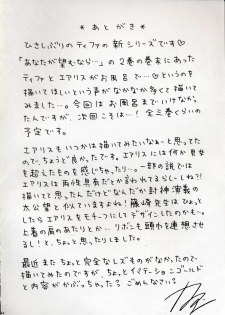 * あとがき *
ひさしぶりのティファの新シリーズです♡
「あなたが望むなら…」の2巻の巻末にあった
ティファとエアリスがお風呂で…♡というのを
描いてほしいという声がなかなか多くて描いて
みました…。今回はお風呂までいけなかっ
たんですが、次回こそは…! 全三巻くらいの
予定です。
エアリスもいつかは描いてみたいなぁーと思ってた
ので、ちょうど良かったです。エアリスには何か男女
を超えたものを感じちゃったり…。一部の説では
エアリスは両性具有だとか言われてるらしーしね?!
描いてて思ったんだけどなんだか封神演義の
太公望と似ていますよね! 藤崎先生はひょっと
したらエアリスをモチーフにしてデザインしたのかも…。
上着の肩のあたりとか…、リボンも頭巾を連想させ
るし! と、ちょっと思ったりしました。
最近またちょっと完全なレズものがなかったので
描いてみたのですが、ちょっとイミテーションゴールド
と内容がかぶっちゃった? ごめんなさい?